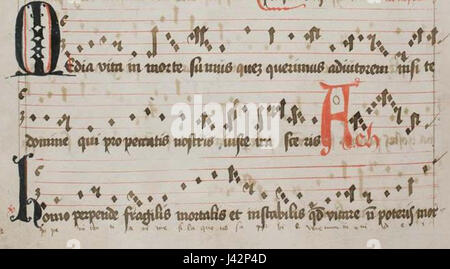 Media vita in morte sumus quez querimus adiutorem nisi te
domine qui pro peccatis nostris iuste irasceris Ach
Homo perpende fragilis mortalis et instabilis qd vitare n poteris mor
alamy
Image ID: M24P4D
www.alamy.com